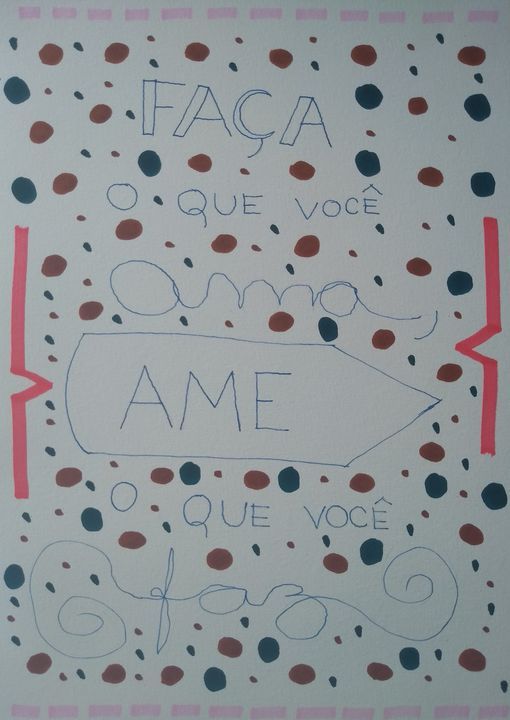 FAÇA
O QUE VOCÊ
ama,
AME
O QUE VOCÊ
faz